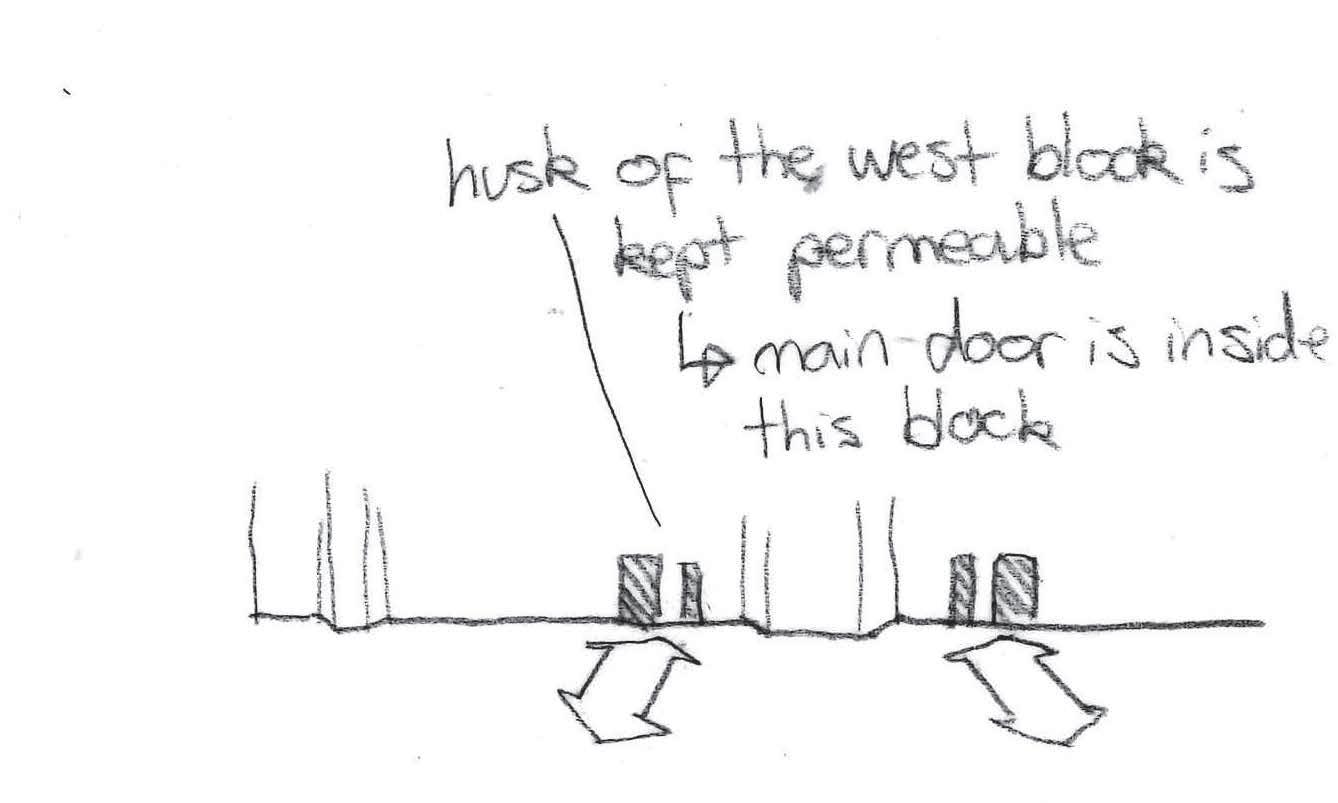 husk of the west block is
kept permeable
↳ main door is inside
this block